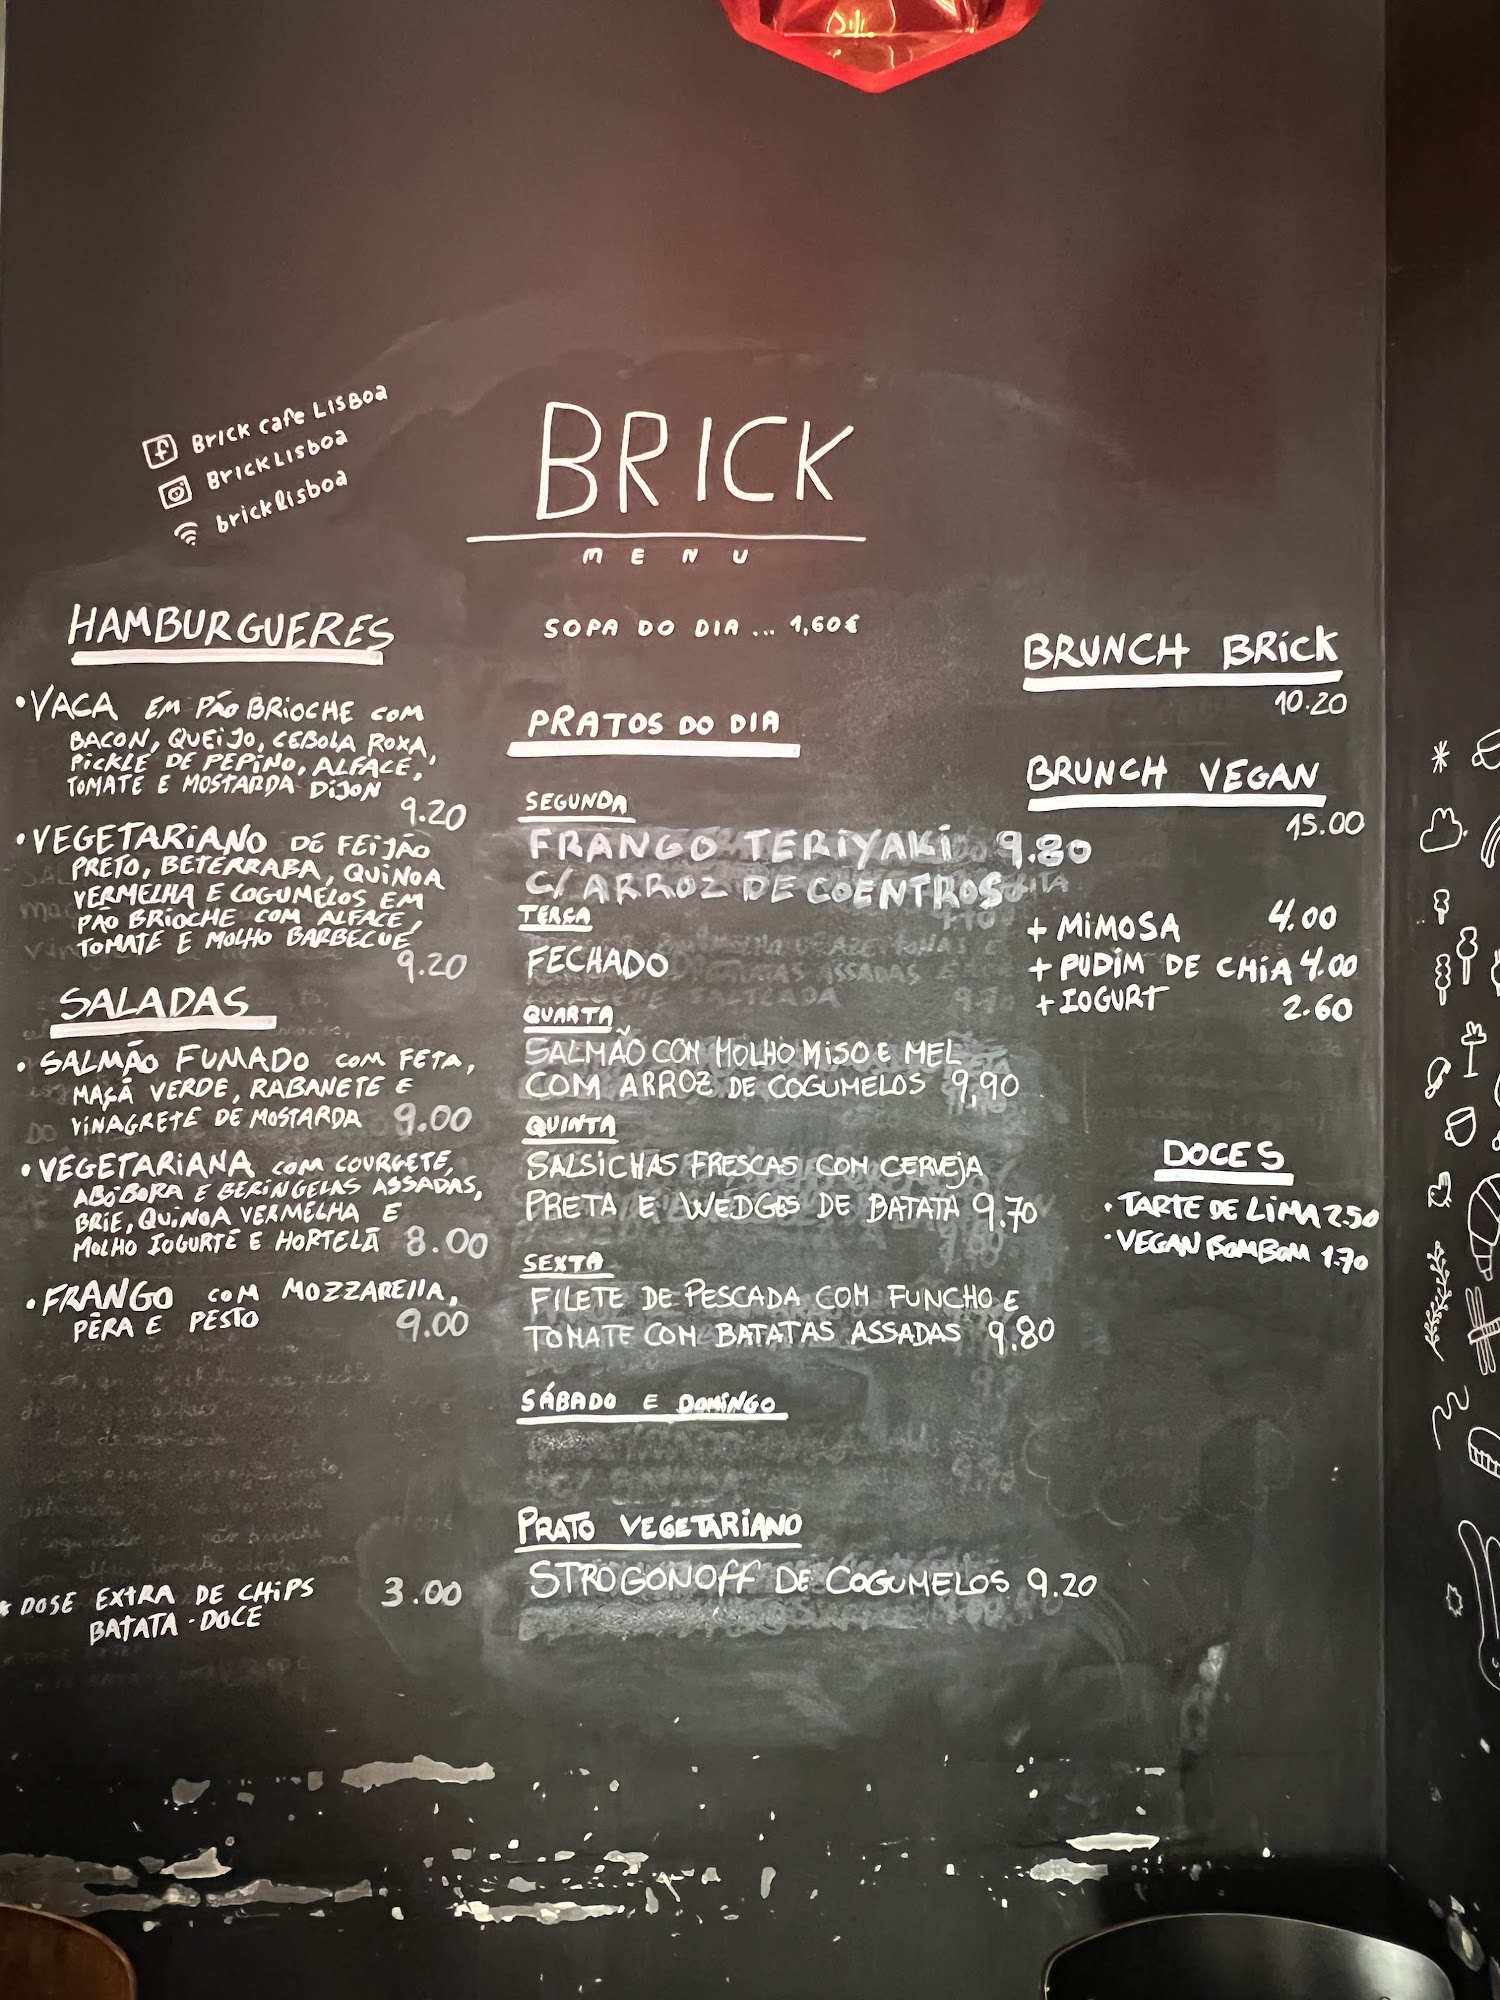 Brick Cafe Lisboa
BrickLisboa
bricklisboa
BRICK
MENU
HAMBURGUERES
• VACA EM PÃO BRIOCHE COM
BACON, QUEIJO, CEBOLA ROXA,
PICKLE DE PEPINO, ALFACE,
TOMATE E MOSTARDA DIJON
9.20
• VEGETARIANO DE FEIJÃO
PRETO, BETERRABA, QUINOA
VERMELHA E COGUMELOS EM
PÃO BRIOCHE COM ALFACE,
TOMATE E MOLHO BARBECUE
9.20
SALADAS
• SALMÃO FUMADO COM FETA,
MAÇÃ VERDE, RABANETE E
VINAGRETE DE MOSTARDA 9.00
• VEGETARIANA COM COURGETE,
ABÓBORA E BERINGELAS ASSADAS,
BRIE, QUINOA VERMELHA E
MOLHO IOGURTE E HORTELÃ 8.00
• FRANGO COM MOZZARELLA,
PÊRA E PESTO 9.00
* DOSE EXTRA DE CHIPS 3.00
BATATA-DOCE
SOPA DO DIA ... 1,60€
PRATOS DO DIA
SEGUNDA
FRANGO TERIYAKI 9.80
C/ ARROZ DE COENTROS
TERÇA
FECHADO
QUARTA
SALMÃO COM MOLHO MISO E MEL
COM ARROZ DE COGUMELOS 9,90
QUINTA
SALSICHAS FRESCAS COM CERVEJA
PRETA E WEDGES DE BATATA 9.70
SEXTA
FILETE DE PESCADA COM FUNCHO E
TOMATE COM BATATAS ASSADAS 9.80
SÁBADO E DOMINGO
PRATO VEGETARIANO
STROGONOFF DE COGUMELOS 9.20
BRUNCH BRICK
10.20
BRUNCH VEGAN
15.00
+ MIMOSA 4.00
+ PUDIM DE CHIA 4.00
+ IOGURT 2.60
DOCES
• TARTE DE LIMA 2.50
• VEGAN BOMBOM 1.70